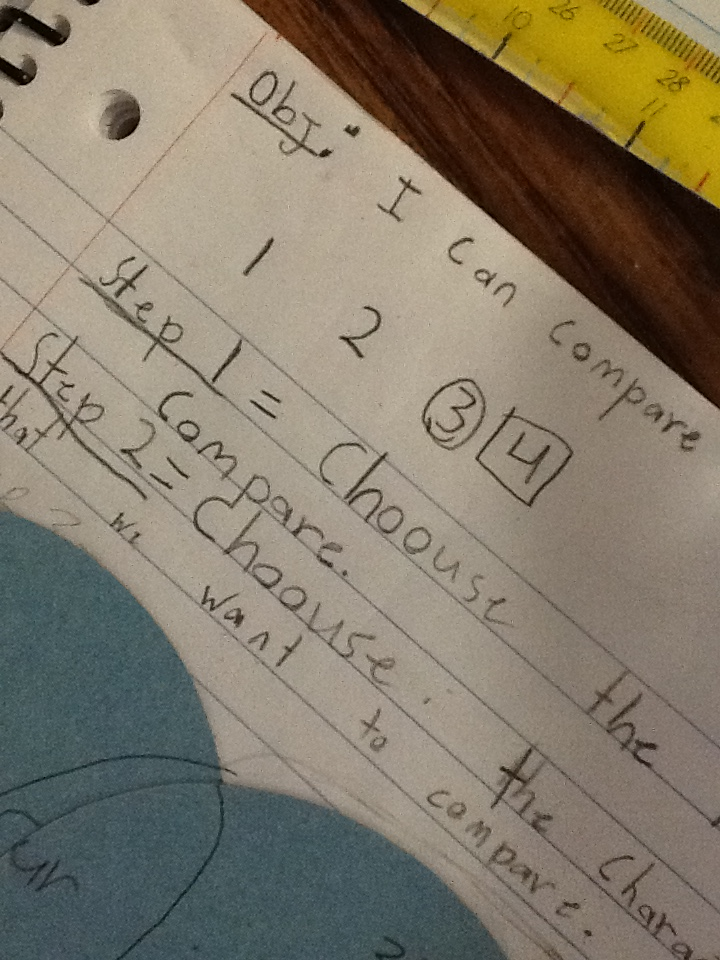 26 27 28
10 11
Obj: I can compare
1 2 3 4
Step 1 = Choouse the
compare.
Step 2 = Choouse. the Chara
that we want to compare.